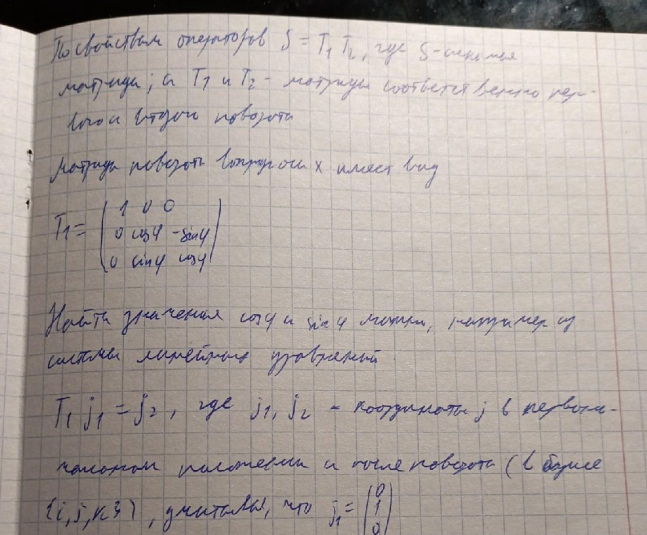 По свойствам операторов S = T₁ T₂, где S - искомая
матрица, а T₁ и T₂ - матрицы соответственно пер-
вого и второго поворота
Матрица поворота вокруг оси x имеет вид
T₁ = (1 0 0
0 cosφ -sinφ
0 sinφ cosφ)
Найти значения cosφ и sinφ можно, например из
системы линейных уравнений
T₁ j₁ = j₂, где j₁, j₂ - координаты j в первона-
чальном положении и после поворота (в базисе
{i, j, k}), учитывая, что j₁ = (0
1
0)